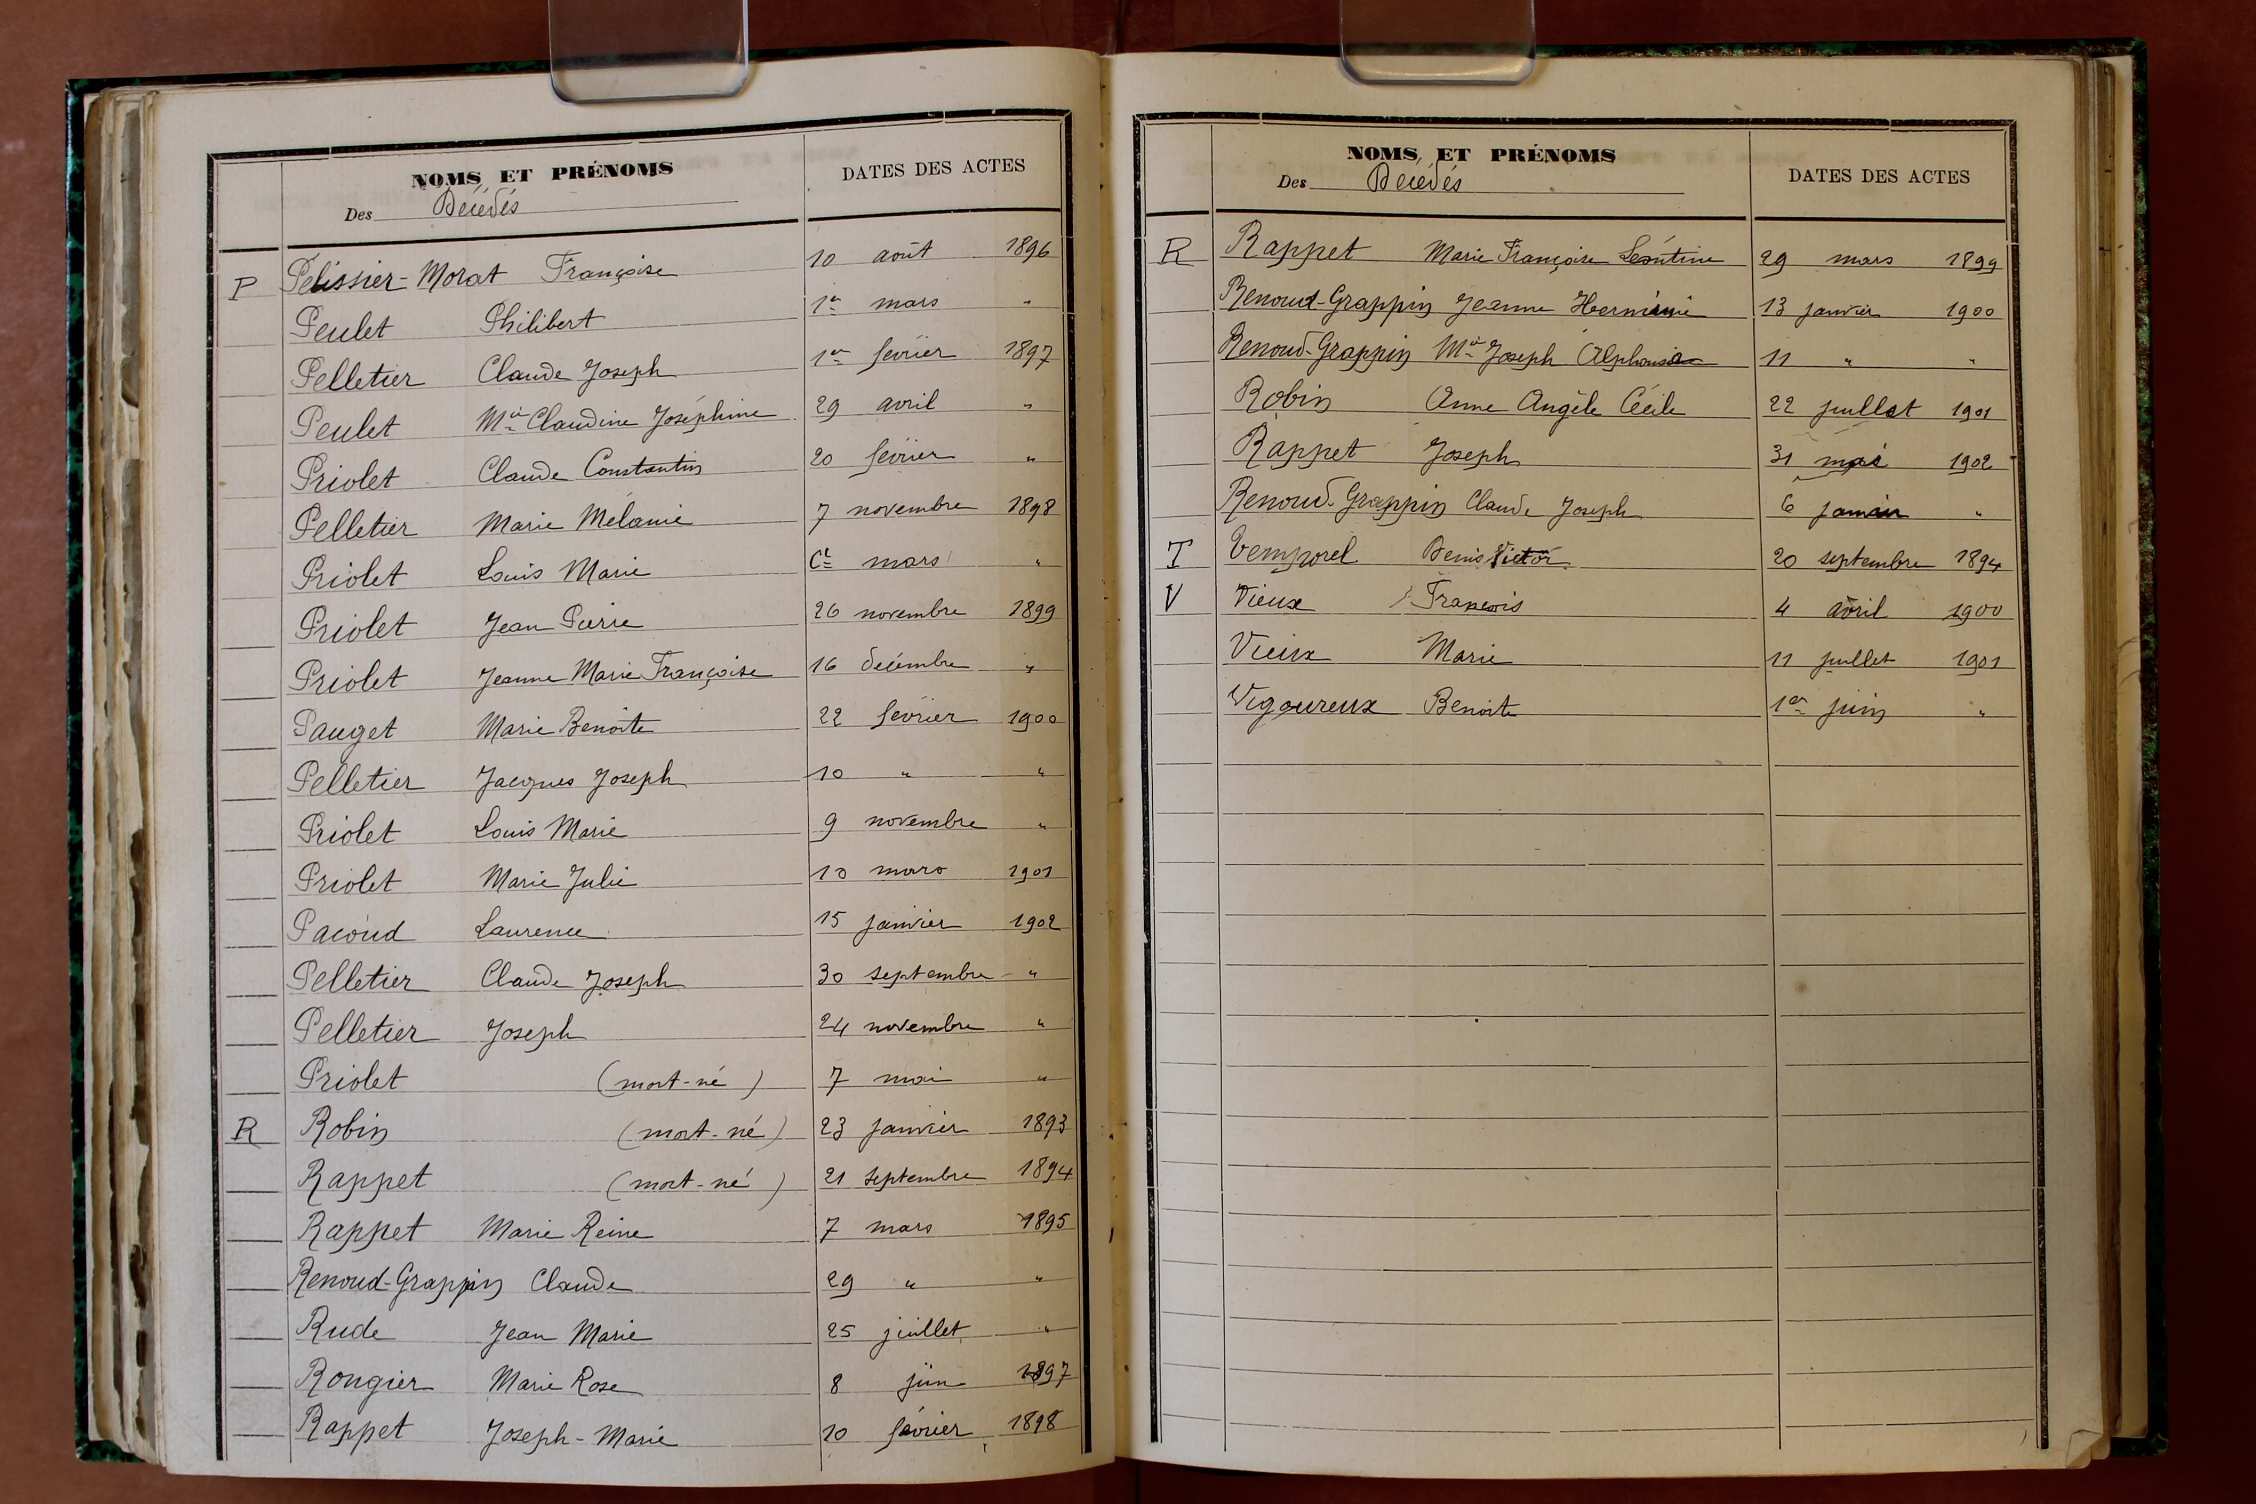 NOMS ET PRÉNOMS
Des Décédés
DATES DES ACTES
P Pelissier-Morat Françoise 10 août 1896
Peulet Philibert 1er mars "
Pelletier Claude Joseph 1er février 1897
Peulet Mie Claudine Joséphine 29 avril "
Priolet Claude Constantin 20 février "
Pelletier Marie Mélanie 7 novembre 1898
Priolet Louis Marie mars "
Priolet Jean Pierre 26 novembre 1899
Priolet Jeanne Marie Françoise 16 décembre "
Pauget Marie Benoite 22 février 1900
Pelletier Jacques Joseph 10 " "
Priolet Louis Marie 9 novembre "
Priolet Marie Julie 10 mars 1901
Pacoud Laurence 15 janvier 1902
Pelletier Claude Joseph 30 septembre "
Pelletier Joseph 24 novembre "
Priolet (mort-né) 7 mai "
R Robin (mort-né) 23 janvier 1893
Rappet (mort-né) 21 septembre 1894
Rappet Marie Reine 7 mars 1895
Renoud-Grappin Claude 29 " "
Rude Jean Marie 25 juillet "
Rongier Marie Rose 8 juin 1897
Rappet Joseph-Marie 10 février 1898
NOMS ET PRÉNOMS
Des Décédés
DATES DES ACTES
R Rappet Marie Françoise Léontine 29 mars 1899
Renoud-Grappin Jeanne Herminie 13 janvier 1900
Renoud-Grappin Mie Joseph 11 " "
Robin Anne Angèle Cécile 22 juillet 1901
Rappet Joseph 31 mai 1902
Renoud-Grappin Claude Joseph 6 janvier "
T Temporel Denis Victor 20 septembre 1894
V Vieux François 4 avril 1900
Vieux Marie 11 juillet 1901
Vigoureux Benoite 1er juin "